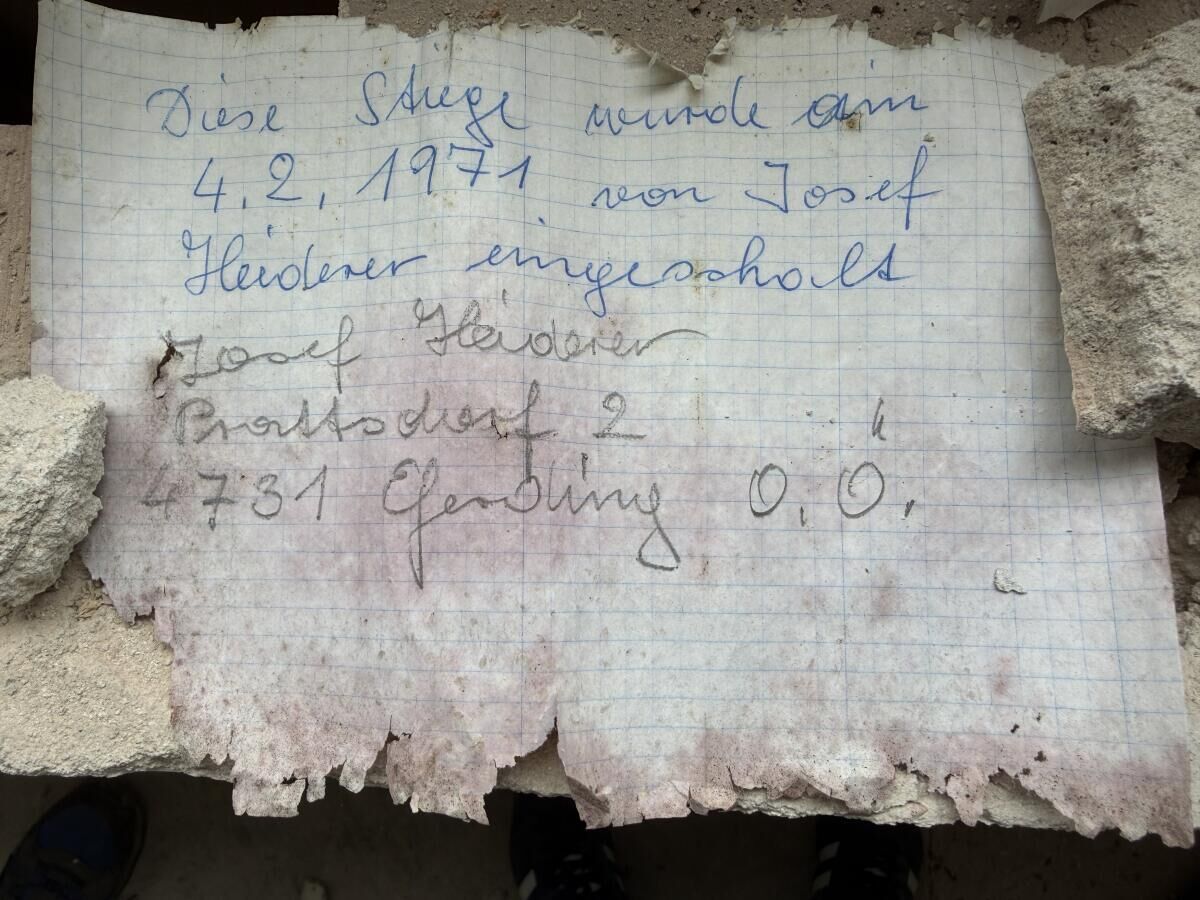 Diese Stiege wurde am
4.2.1971 von Josef
Heiderer eingeschalt
Josef Heiderer
Prattsdorf 2
4731 Eferding O.Ö.